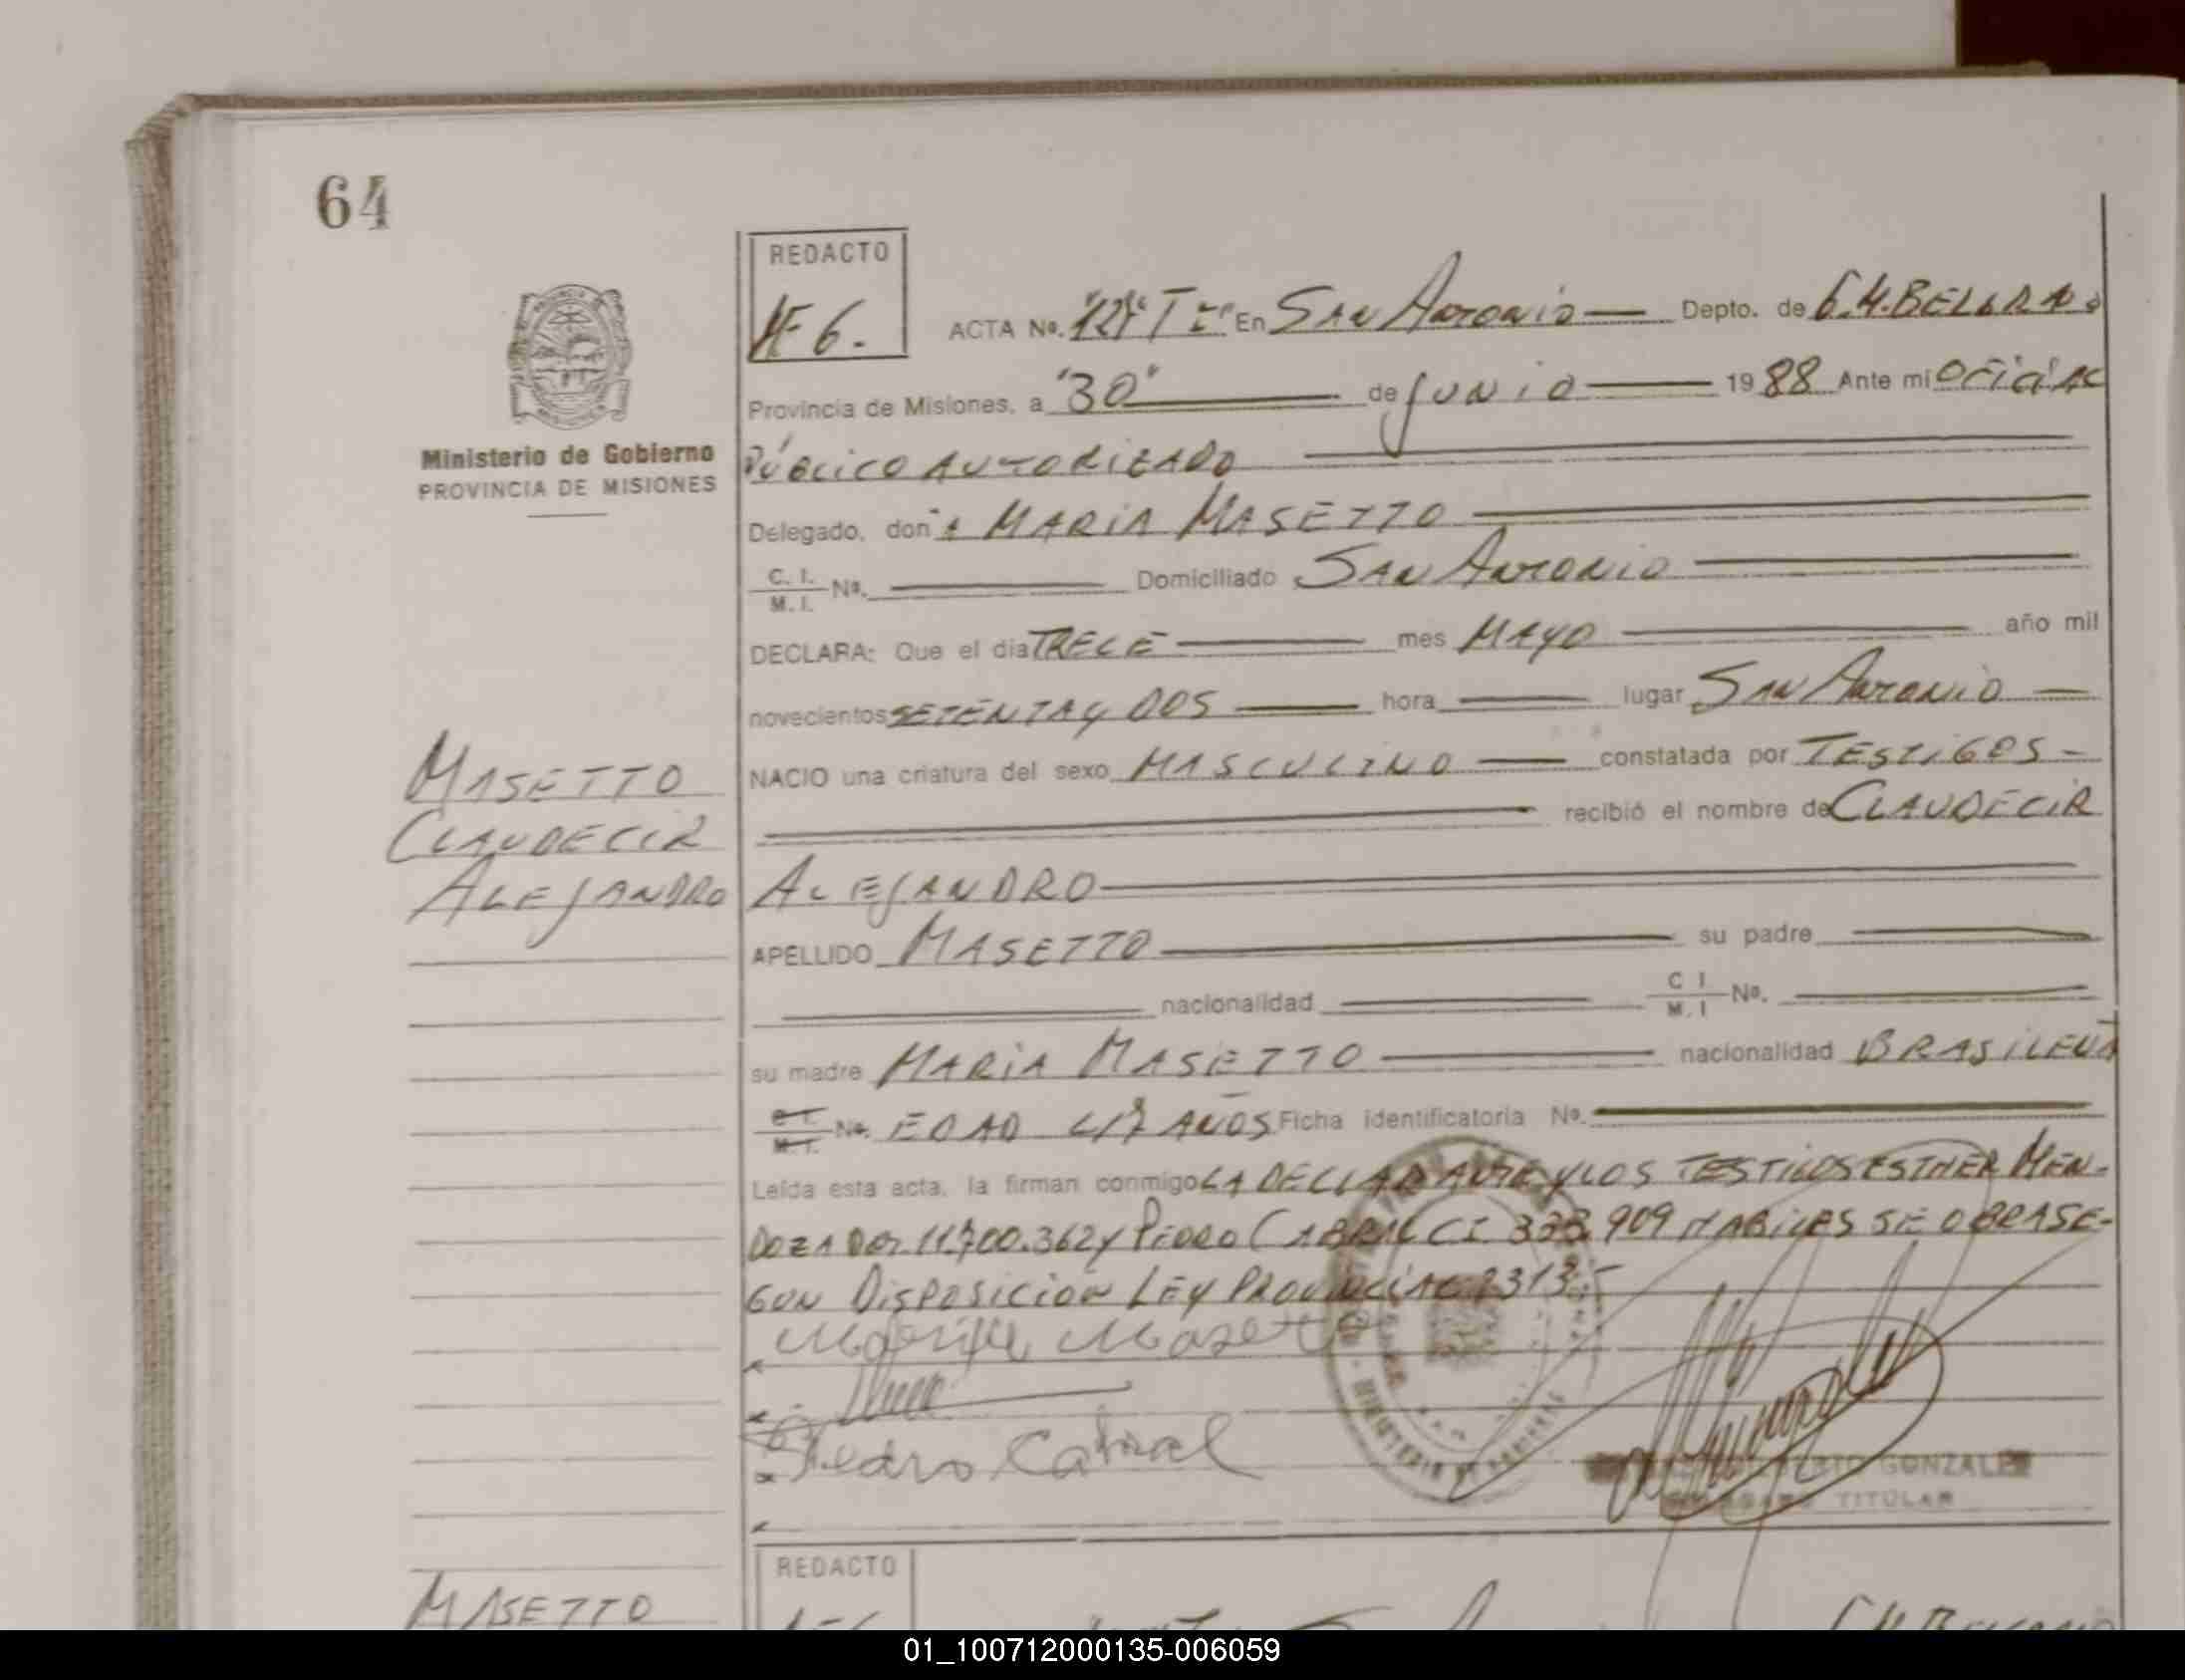 64
REDACTO
ACTA Nº. En SAN ANTONIO Depto. de G.M. BELGRANO
Provincia de Misiones, a "30" de JUNIO 1988 Ante mi OFICIAL
Ministerio de Gobierno
PROVINCIA DE MISIONES
PÚBLICO AUTORIZADO
Delegado, don A MARIA MASETTO
C. I. M. I. Nº. Domiciliado SAN ANTONIO
DECLARA: Que el dia TRECE mes MAYO año mil
novecientos SETENTA Y DOS hora lugar SAN ANTONIO
NACIO una criatura del sexo MASCULINO constatada por TESTIGOS
recibió el nombre de CLAUDECIR
MASETTO
CLAUDECIR
ALEJANDRO
ALEJANDRO
APELLIDO MASETTO su padre
nacionalidad C I M. I Nº.
su madre MARIA MASETTO nacionalidad BRASILEÑA
C. I. M. I. Nº. EDAD AÑOS Ficha identificatoria Nº.
Leída esta acta, la firman conmigo LA DECLARANTE Y LOS TESTIGOS ESTHER MEN-
DOZA 11.700.362 Y PEDRO CABRAL CI 333.909 HABILES SE OBRA SE-
GUN DISPOSICION LEY PROVINCIAL
Pedro Cabral
GONZALEZ
TITULAR
REDACTO
MASETTO
01_100712000135-006059